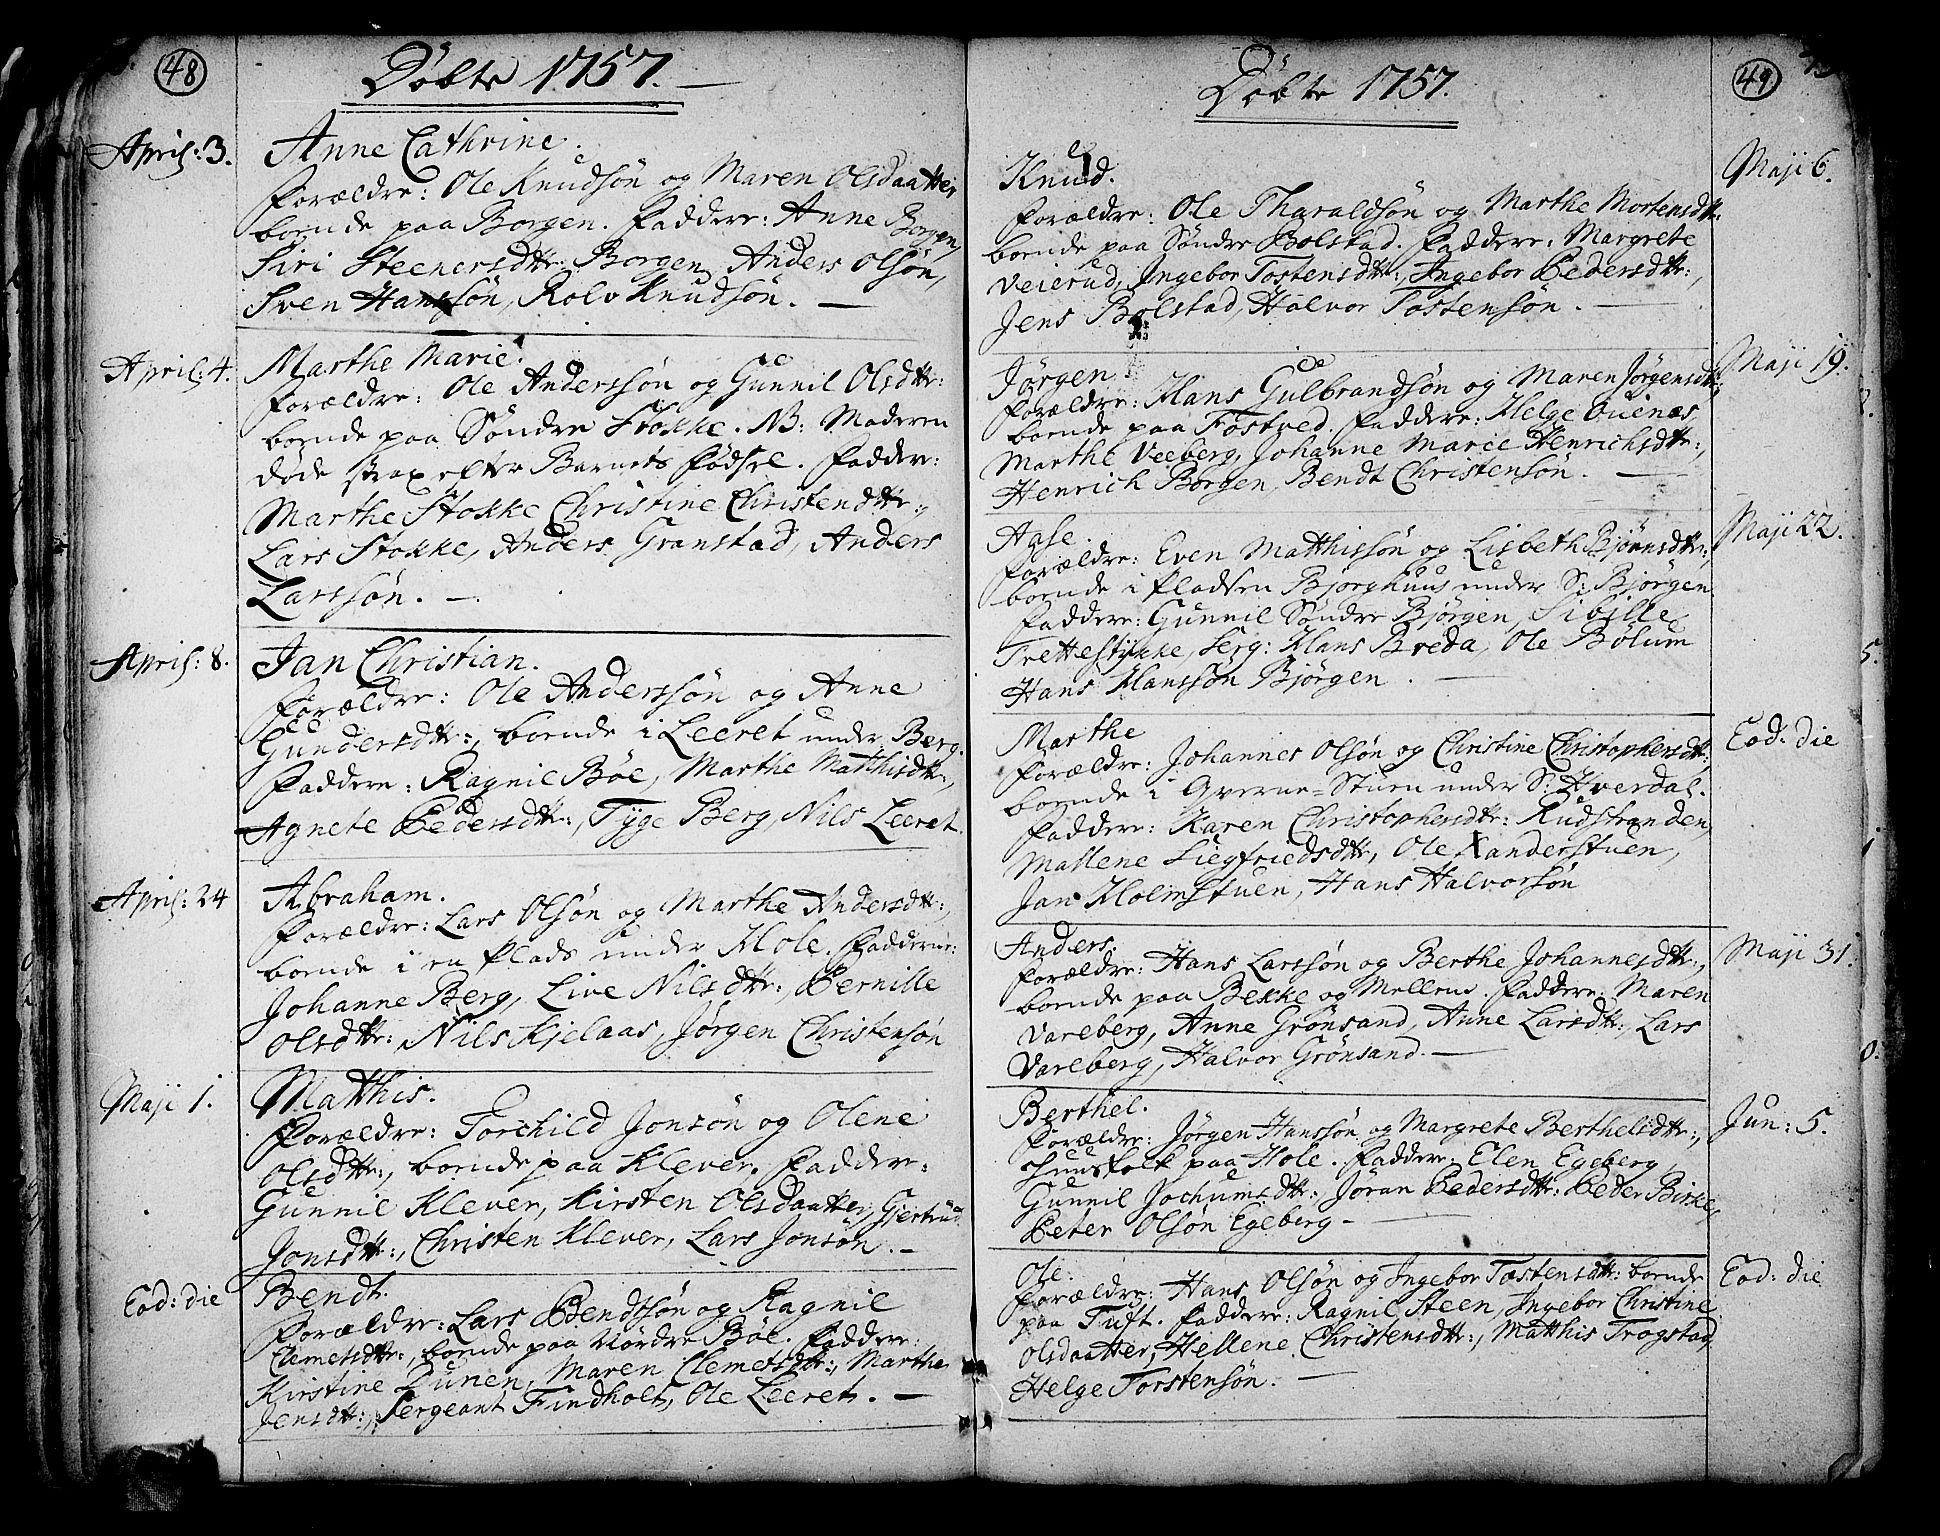 48
Döbte 1757.
April: 3.
Anne Cathrine.
Forældre: Ole Knudsøn og Maren Olsdaatter
boende paa Borgen. Faddere: Anne Borgen,
Siri Steenersdttr: Borgen, Anders Olsøn,
Sven Hanssøn, Rolv Knudsøn.
April: 4.
Marthe Marie.
Forældre: Ole Anderssøn og Gunnil Olsdttr:
boende paa Søndre Stokke. NB: Moderen
døde strax efter Barnets Fødsel. Faddere:
Marthe Stokke Christine Christendttr:,
Lars Stokke, Anders Granstad, Anders
Larssøn.
April: 8.
Jan Christian.
Forældre: Ole Anderssøn og Anne
Gundersdttr:, boende i Leeret under Berg.
Faddere: Ragnil Böe, Marthe Matthisdttr:,
Agnete Pedersdttr:, Tyge Berg, Nils Leeret.
April: 24
Abraham.
Forældre: Lars Olsøn og Marthe Andersdttr:,
boende i en Plads under Hole. Fadderne:
Johanne Berg, Live Nilsdttr:, Pernille
Olsdttr:, Nils Kjelaas, Jørgen Christensøn
Maji 1.
Matthis.
Forældre: Torchild Jonsøn og Olene
Olsdttr:, boende paa Klever. Faddere:
Gunnil Klever, Kirsten Olsdaatter, Gjertrud
Jonsdttr:, Christen Klever, Lars Jonsøn.
Eod: die
Bendt.
Forældre: Lars Bendtsøn og Ragnil
Clemetsdttr:, boende paa Nordre Böe. Faddere
Kirstine Dunen, Maren Clemetsdttr:, Marthe
Jensdttr:, Sergeant Findholt, Ole Leeret.
49
Döbte 1757.
Maji 6.
Knud.
Forældre: Ole Tharaldsøn og Marthe Mortensdttr:
boende paa Søndre Bolstad. Faddere: Margrete
Veierud, Ingebor Tostensdttr:, Ingebor Pedersdttr:,
Jens Bolstad, Halvor Tostensøn.
Maji 19.
Jørgen
Forældre: Hans Gulbrandsøn og Maren Jörgensdttr:,
boende paa Fostved. Faddere: Helge Buenæs
Marthe Veeberg, Johanne Marie Henrichsdttr:,
Henrich Borgen, Bendt Christensøn.
Maji 22.
Aase.
Forældre: Even Matthissøn og Lisbeth Bjørnsdttr:,
boende i Pladsen Bjorghuus under S: Bjørgen
Faddere: Gunnil Søndre Bjørgen, Sibille
Trettestykke, Serg: Hans Breda, Ole Bolum
Hans Hanssøn Bjørgen.
Eod: die
Marthe
Forældre: Johannes Olsøn og Christine Christophersdttr:,
boende i Qverne=Stuen under S: Hverdal.
Faddere: Karen Christophersdttr: Rudstranden,
Mallene Siegfriedsdttr, Ole Xanderstuen,
Jan Holmstuen, Hans Halvorsøn
Maji 31.
Anders.
Forældre: Hans Larssøn og Berthe Johannesdttr:,
boende paa Bekke og Mellem. Faddere: Maren
Varleberg, Anne Grønsand, Anne Larsdttr:, Lars
Varleberg, Halvor Grønsand.
Jun: 5.
Berthel.
Forældre: Jørgen Hanssøn og Margrete Berthelsdttr:,
Huusfolk paa Hole. Faddere: Elen Egeberg,
Gunnil Jochumsdttr:, Jöran Pedersdttr: Peder Birke,
Peter Olsøn Egeberg
Eod: die
Ole.
Forældre: Hans Olsøn og Ingebor Tostensdttr: boende
paa Tuft. Faddere: Ragnil Steen, Ingebor Christine
Olsdaatter, Hellene Christensdttr:, Matthis Trogstad,
Helge Torstensøn.